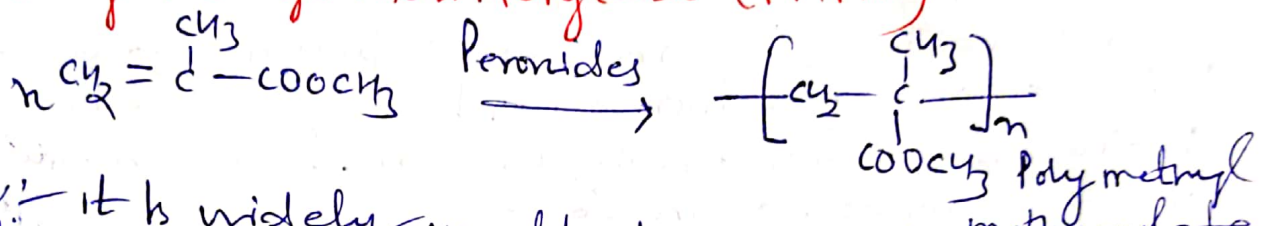 CH3
n CH2 = C — COOCH3 Peroxides [ CH2 — C ]n
CH3
COOCH3 Polymethyl
:- it is widely